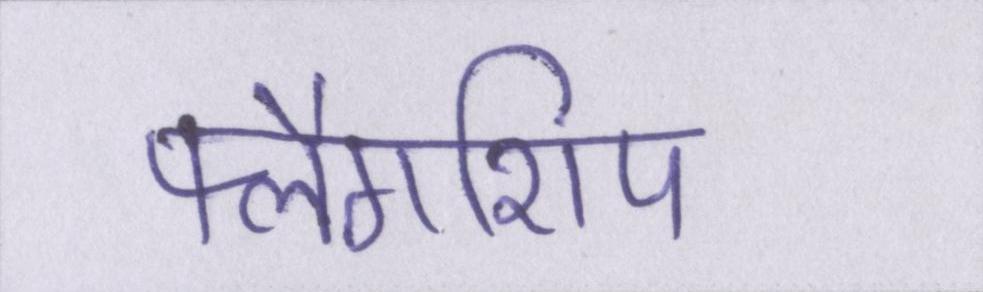 फ्लैगशिप